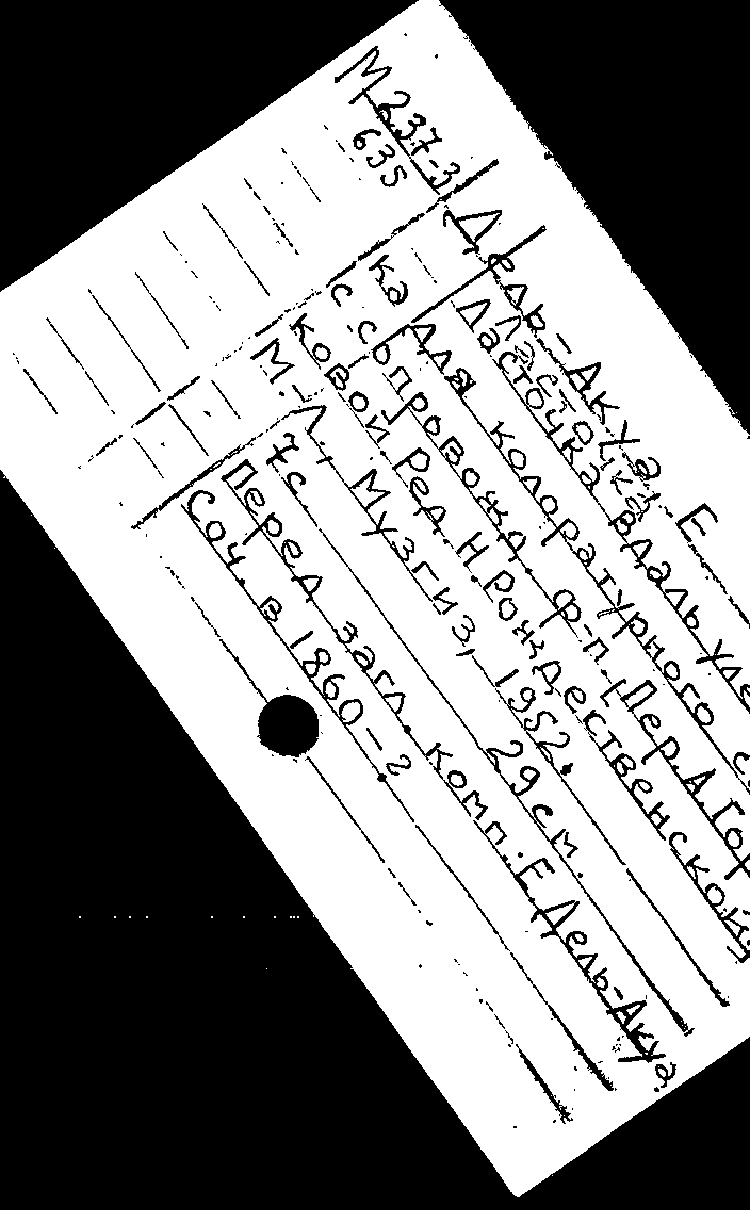 М 237-3
635
Дель-Акуа, Е
Ласточка
Ласточка вдаль уле
ка Для колоратурного с
с сопровожд. ф-п. [Пер. А. Гор
ковой. Ред. Н. Рождественской]
М.-Л., Музгиз, 1952.
7с 29 см.
Перед загл. комп.: Е. Дель-Акуа
Соч. в 1860-г.